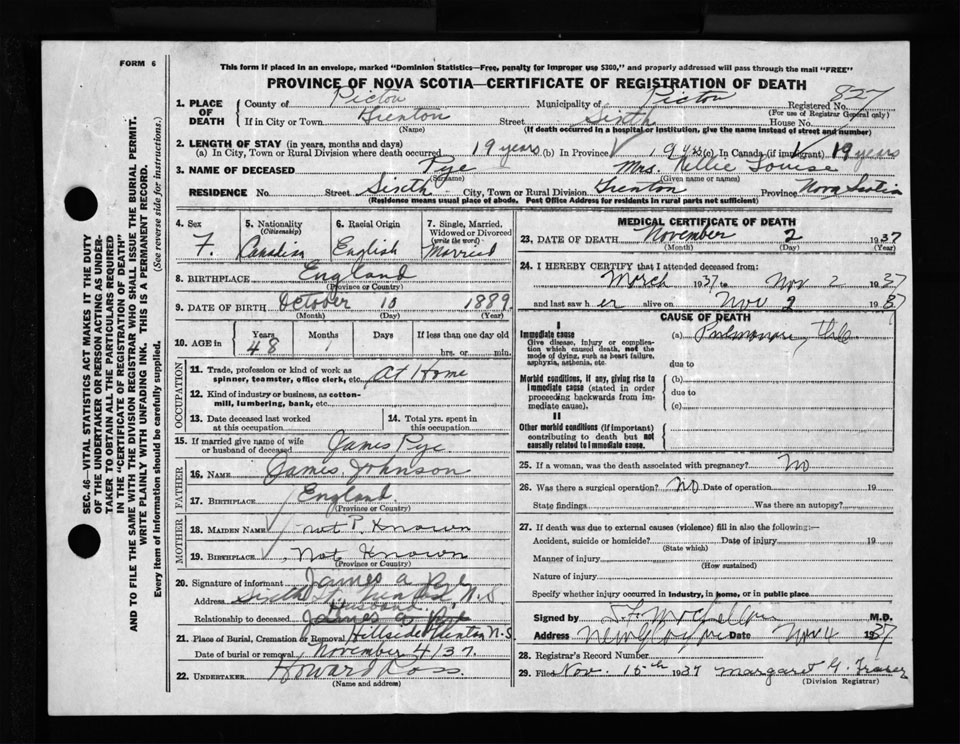 FORM 6
This form if placed in an envelope, marked "Dominion Statistics—Free, penalty for improper use $300," and properly addressed will pass through the mail "FREE"
PROVINCE OF NOVA SCOTIA—CERTIFICATE OF REGISTRATION OF DEATH
1. PLACE OF DEATH County of Pictou Municipality of Pictou Registered No. 827
(For use of Registrar General only)
If in City or Town Trenton Street Sixth House No.
(Name) (If death occurred in a hospital or institution, give the name instead of street and number)
2. LENGTH OF STAY (in years, months and days)
(a) In City, Town or Rural Division where death occurred 19 years (b) In Province 19 yrs (c) In Canada (if immigrant) 19 years
3. NAME OF DECEASED Pye Mrs. Nellie Louise
(Surname) (Given name or names)
RESIDENCE No. Street Sixth City, Town or Rural Division Trenton Province Nova Scotia
(Residence means usual place of abode. Post Office Address for residents in rural parts not sufficient)
4. Sex F.
5. Nationality (Citizenship) Canadian
6. Racial Origin English
7. Single, Married, Widowed or Divorced (write the word) Married
8. BIRTHPLACE England
(Province or Country)
9. DATE OF BIRTH October 10 1889
(Month) (Day) (Year)
10. AGE in Years 48 Months 1 Days If less than one day old hrs. or min.
OCCUPATION
11. Trade, profession or kind of work as spinner, teamster, office clerk, etc. At Home
12. Kind of industry or business, as cotton-mill, lumbering, bank, etc.
13. Date deceased last worked at this occupation
14. Total yrs. spent in this occupation
15. If married give name of wife or husband of deceased James Pye
FATHER
16. NAME James Johnson
17. BIRTHPLACE England
(Province or Country)
MOTHER
18. MAIDEN NAME not Known
19. BIRTHPLACE Not Known
(Province or Country)
20. Signature of informant James A Pye
Address Sixth St. Trenton N.S.
Relationship to deceased Husband
James A Pye
21. Place of Burial, Cremation or Removal Hillside Trenton N.S
Date of burial or removal November 4/37.
22. UNDERTAKER Howard Ross.
(Name and address)
MEDICAL CERTIFICATE OF DEATH
23. DATE OF DEATH November 2 1937
(Month) (Day) (Year)
24. I HEREBY CERTIFY that I attended deceased from:
March 1937 to Nov 2 1937
and last saw her alive on Nov 2 1937
CAUSE OF DEATH
I
Immediate cause (a) Pulmonary
Give disease, injury or complication which caused death, not the mode of dying, such as heart failure, asphyxia, asthenia, etc.
due to
Morbid conditions, if any, giving rise to immediate cause (stated in order proceeding backwards from immediate cause).
(b)
due to
(c)
II
Other morbid conditions (if important) contributing to death but not causally related to immediate cause.
25. If a woman, was the death associated with pregnancy? No
26. Was there a surgical operation? No Date of operation 19
State findings Was there an autopsy?
27. If death was due to external causes (violence) fill in also the following:—
Accident, suicide or homicide? Date of injury 19
(State which)
Manner of injury
(How sustained)
Nature of injury
Specify whether injury occurred in industry, in home, or in public place
Signed by M.D.
Address New Glasgow Date Nov 4 1937
28. Registrar's Record Number
29. Filed Nov. 15th 1937 Margaret G. Fraser
(Division Registrar)
SEC. 46—VITAL STATISTICS ACT MAKES IT THE DUTY
OF THE UNDERTAKER OR PERSON ACTING AS UNDER-
TAKER TO OBTAIN ALL THE PARTICULARS REQUIRED
IN THE "CERTIFICATE OF REGISTRATION OF DEATH"
AND TO FILE THE SAME WITH THE DIVISION REGISTRAR WHO SHALL ISSUE THE BURIAL PERMIT.
WRITE PLAINLY WITH UNFADING INK. THIS IS A PERMANENT RECORD.
Every item of information should be carefully supplied. (See reverse side for instructions.)